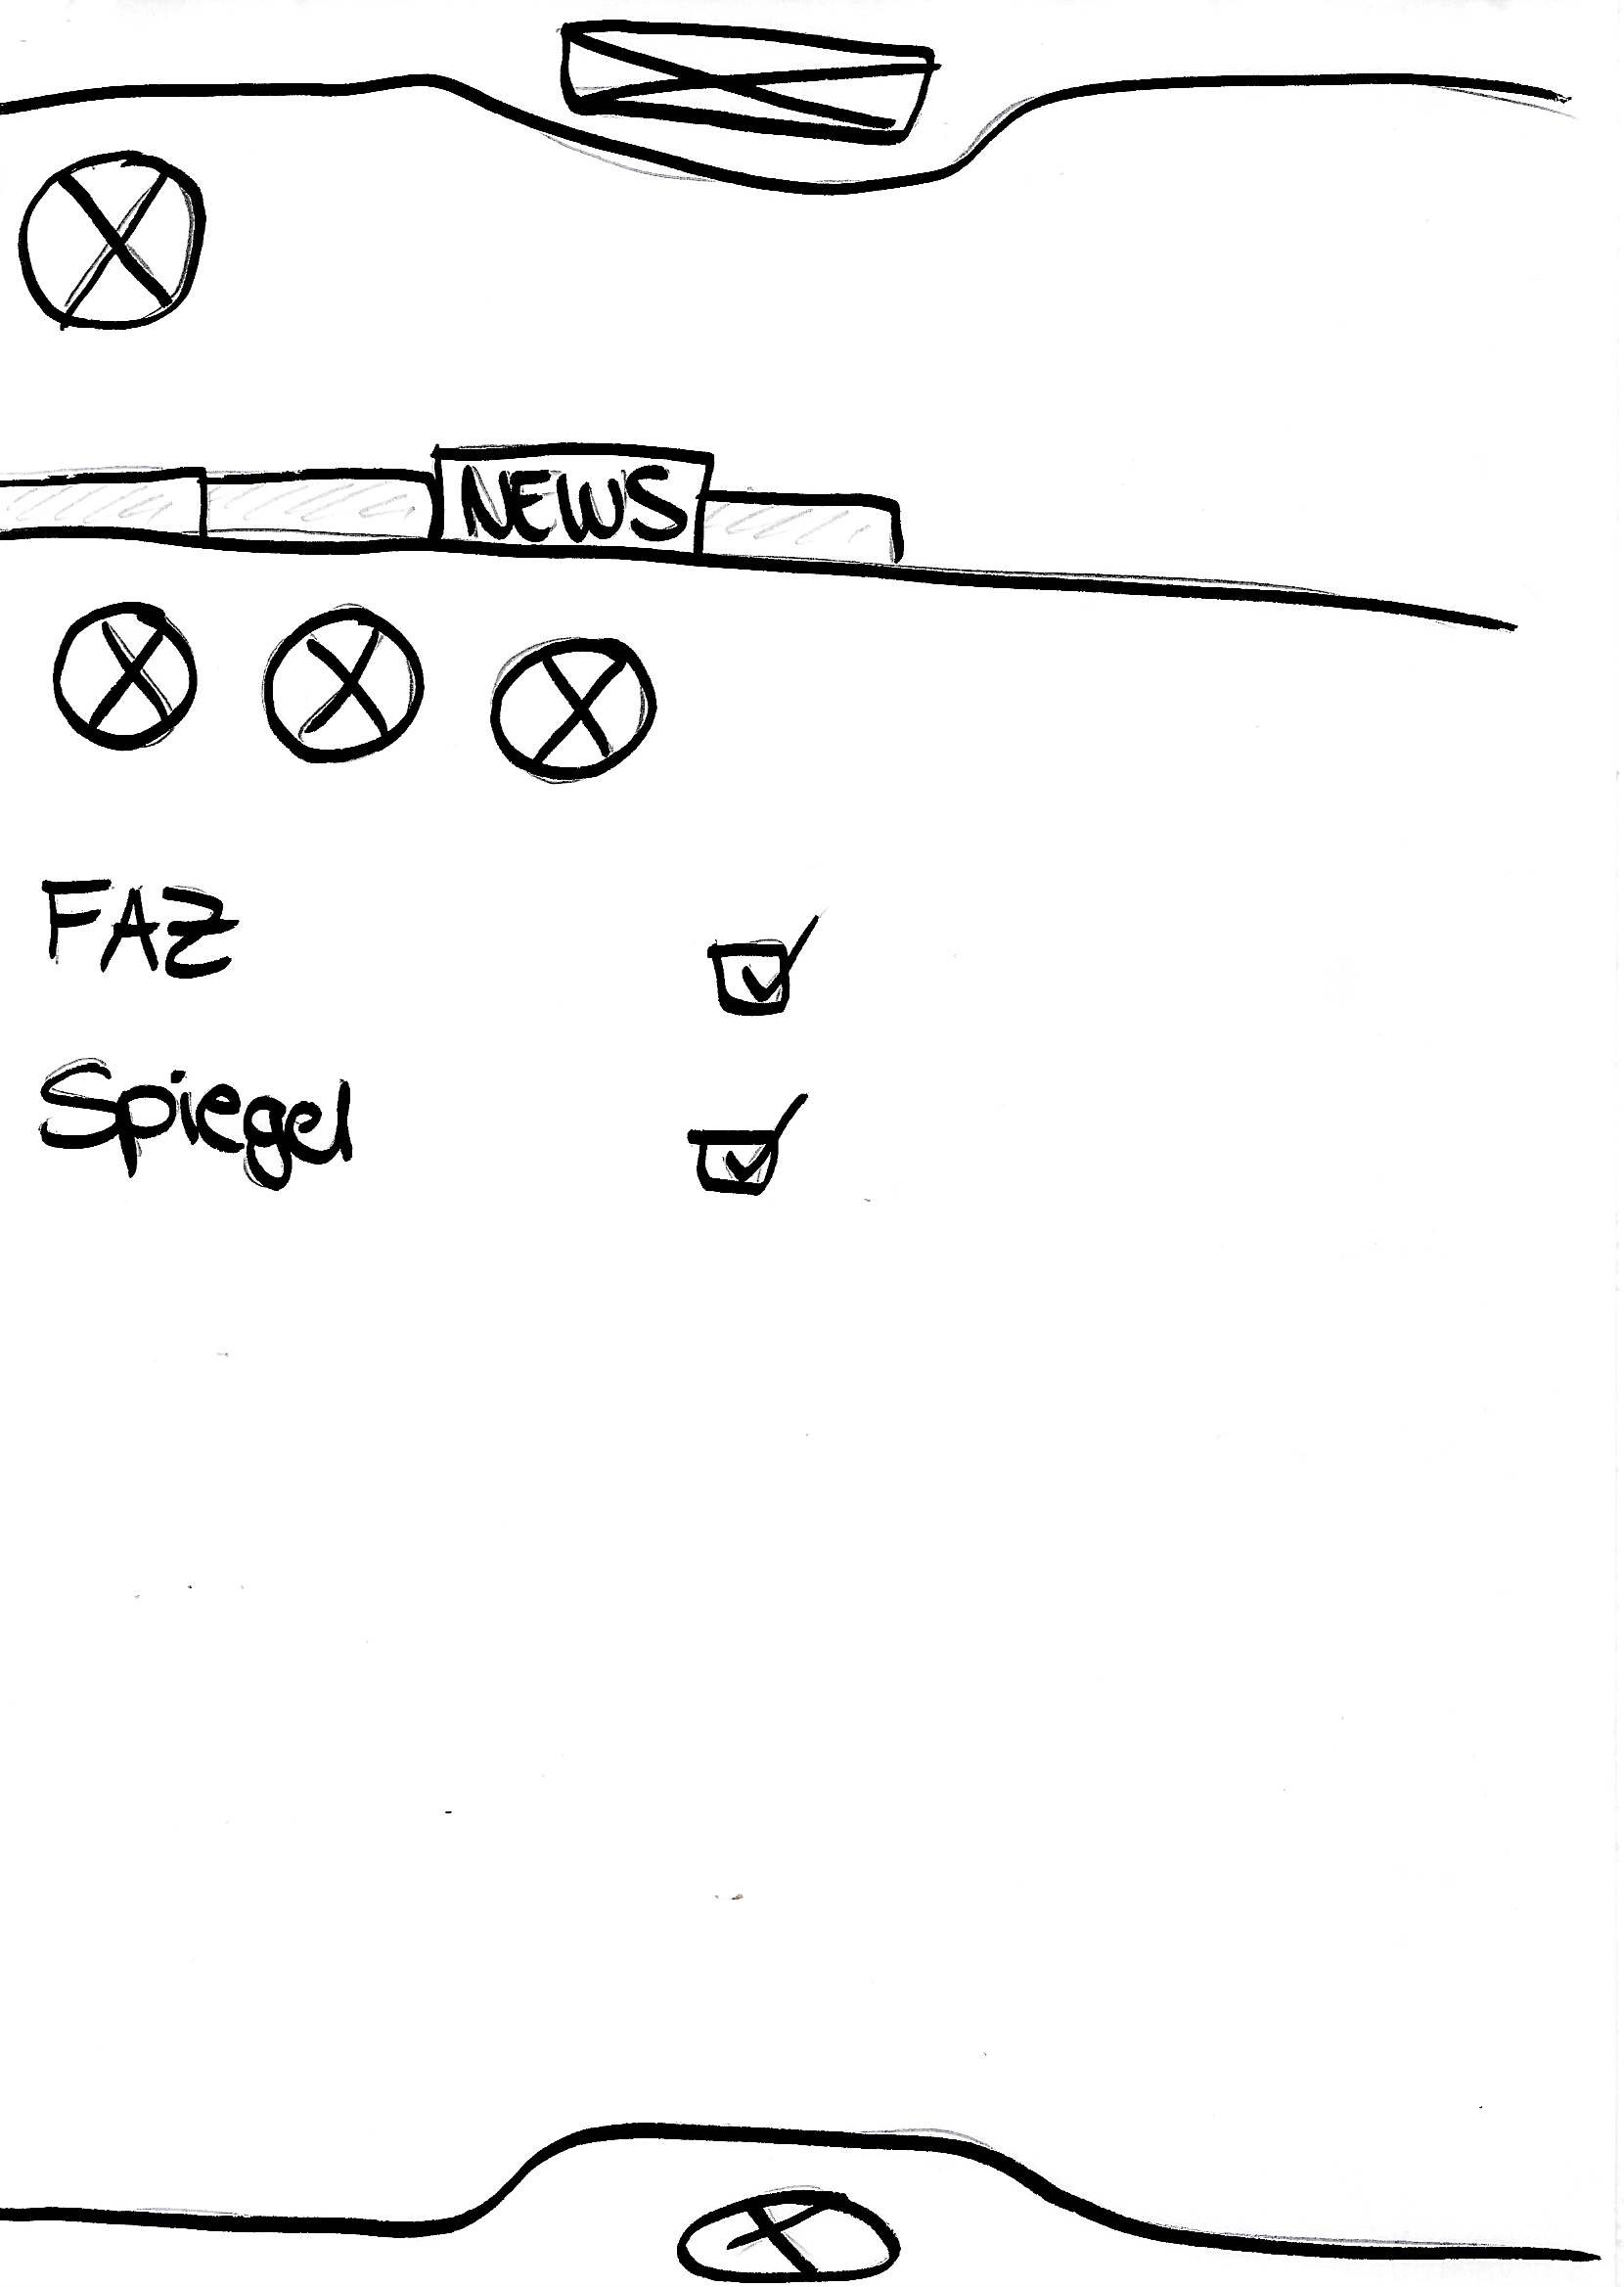 NEWS
FAZ
Spiegel